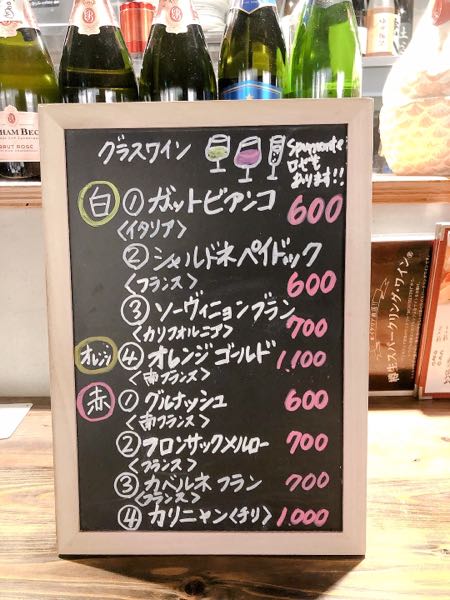 グラスワイン
Spumante
ロゼも
あります!!
白 ① ガットビアンコ 600
<イタリア>
② シャルドネ ペイドック
<フランス> 600
③ ソーヴィニョンブラン
<カリフォルニア> 700
オレンジ ④ オレンジゴールド 1,100
<南フランス>
赤 ① グルナッシュ 600
<南フランス>
② フロンサックメルロー 700
<フランス>
③ カベルネ フラン 700
<フランス>
④ カリニャン<チリ> 1,000
HAM BEC
BRUT ROSÉ
樽生スパークリング・ワイン®